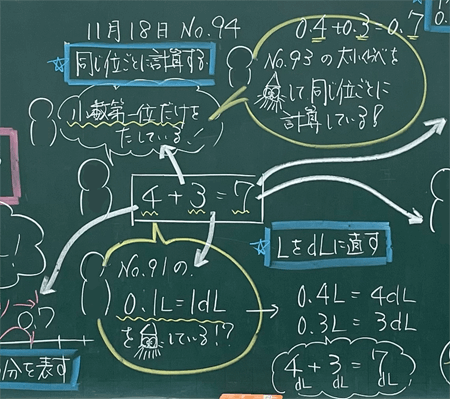 11月18日 No.94
0.4+0.3=0.7
☆同じ位ごとに計算する
No.93の大仏さんを
して同じ位ごとに
計算している!!
小数第一位だけを
たしている!
4+3=7
☆LをdLに直す
No.91の
0.1L=1dL
を にしている!?
→ 0.4L=4dL
0.3L=3dL
4dL+3dL=7dL
0.7
分を表す